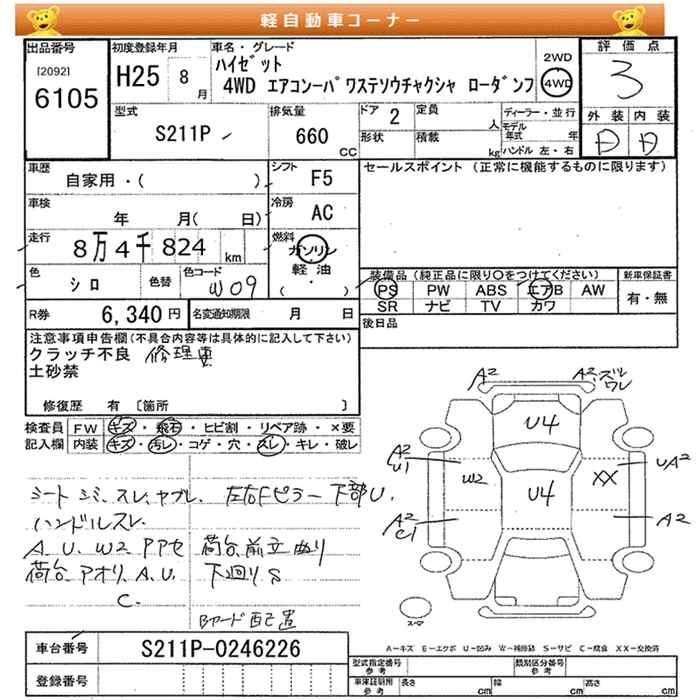 軽自動車コーナー
出品番号
[2092]
6105
初度登録年月
H25 8 月
車名・グレード
ハイゼット
4WD エアコンーパワステソウチャクシャ ローダンプ
2WD
4WD
評価点
3
外装 内装
D D
型式
S211P
排気量
660 cc
ドア 2
形状
定員 人
積載 kg
ディーラー・並行
モデル年式 年
ハンドル 左・右
車歴
自家用・( )
シフト F5
車検
年 月( 日)
冷房 AC
走行
8万4千824 km
燃料
ガソリン
軽油
( ・ )
色
シロ
色替
色コード
W09
R券 6,340円
名変通知期限 月 日
セールスポイント (正常に機能するものに限ります)
装備品 (純正品に限り○をつけてください)
PS PW ABS エアB AW
SR ナビ TV カワ
新車保証書
有・無
後日品
注意事項申告欄(不具合内容等は具体的に記入して下さい)
クラッチ不良 修理車
土砂禁
修復歴 有 [箇所 ]
検査員 FW キズ・飛石・ヒビ割・リペア跡・×要
記入欄 内装 キズ・汚レ・コゲ・穴・スレ・キレ・破レ
シート シミ、スレ、ヤブレ、 左右Fピラー下部U.
ハンドルスレ
A.U.W2 PPセ 荷台前立曲り
荷台アオリ、A.U. 下廻りS
C.
Bヤード配置
A2 A2.ズツ
ワレ
U4
A2
U1
W2
XX
UA2
U4
A2
C1
A2
スーマ
A-キズ E-エクボ U-凹み W-補修跡 S-サビ C-腐食 XX-交換済
車台番号 S211P-0246226
登録番号
型式指定番号
参考
類別区分番号
参考
車庫証明用
参考
長さ cm 幅 cm 高さ cm